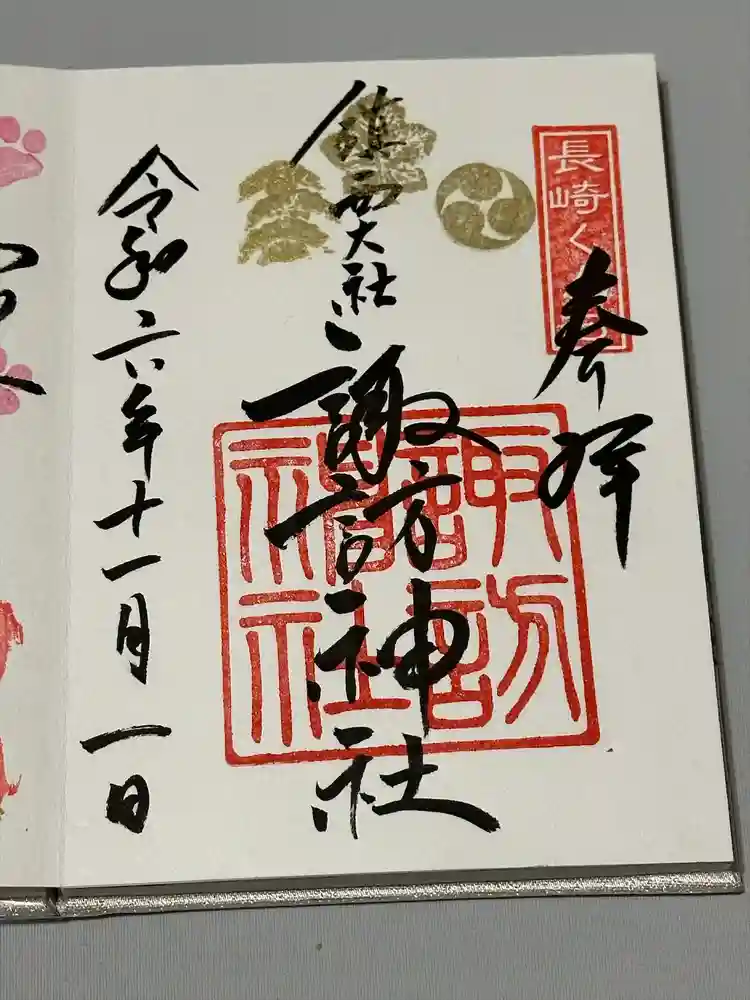 長崎く
奉拝
鎮西大社
諏訪神社
諏訪神社
令和六年十一月一日